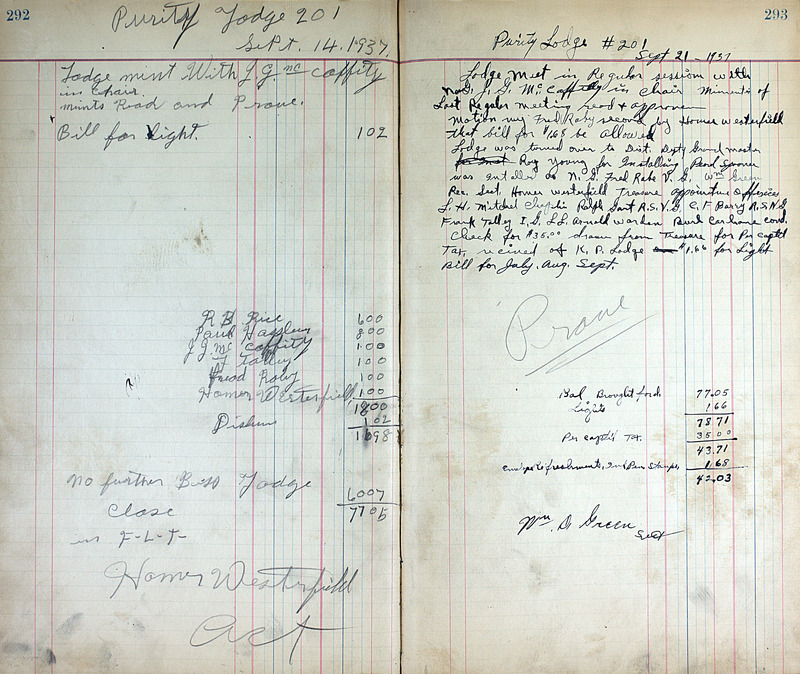 292
Purity Lodge 201
Sept. 14. 1937.
Lodge mint With J G Mc Caffity
in Chair.
mints Read and Prove.
Bill for Light. 102
R B Rice 600
Paul Hassley 800
J. G. Mc Caffity 100
T Talley 100
Fread Roby 100
Homer Westerfield 100
1800
Disburs 102
1698
No further Bess Lodge 6007
Close 7705
in F-L-T-
Homer Westerfield
Act
293
Purity Lodge #201
Sept 21 - 1937
Lodge Met in Regular session with
N.G. J. G. Mc Caffity in Chair Minuets of
Last Regular meeting read & approven
Motion my Fred Raby second by Homer Westerfield
that bill for $1.68 be allowed
Lodge was turned over to Dist. Dety Grand master
Roy Young for Installing Pand Sponer
was as N. G. Fred Rabe V. G. Wm Green
Rec. Sect. Homer Westerfield Treasure appointive officers
J. H. Mitchel Chaplin Ralph Gant R.S.V.G. C. F. Barry R.S.N.G.
Frank Talley I. G. L.L. Arnold warden Burl Cardrane cond.
Check for $35.00 drawn from Treasure for Per captil
Tax, recived of K. P. Lodge $1.66 for Light
Bill for July. Aug. Sept.
Prove
Bal Brought ford. 77.05
Lights 1 66
78 71
Per captil Tax. 35 00
43.71
refreshments, Stamps 1.68
42.03
Wm. D. Green
Sect